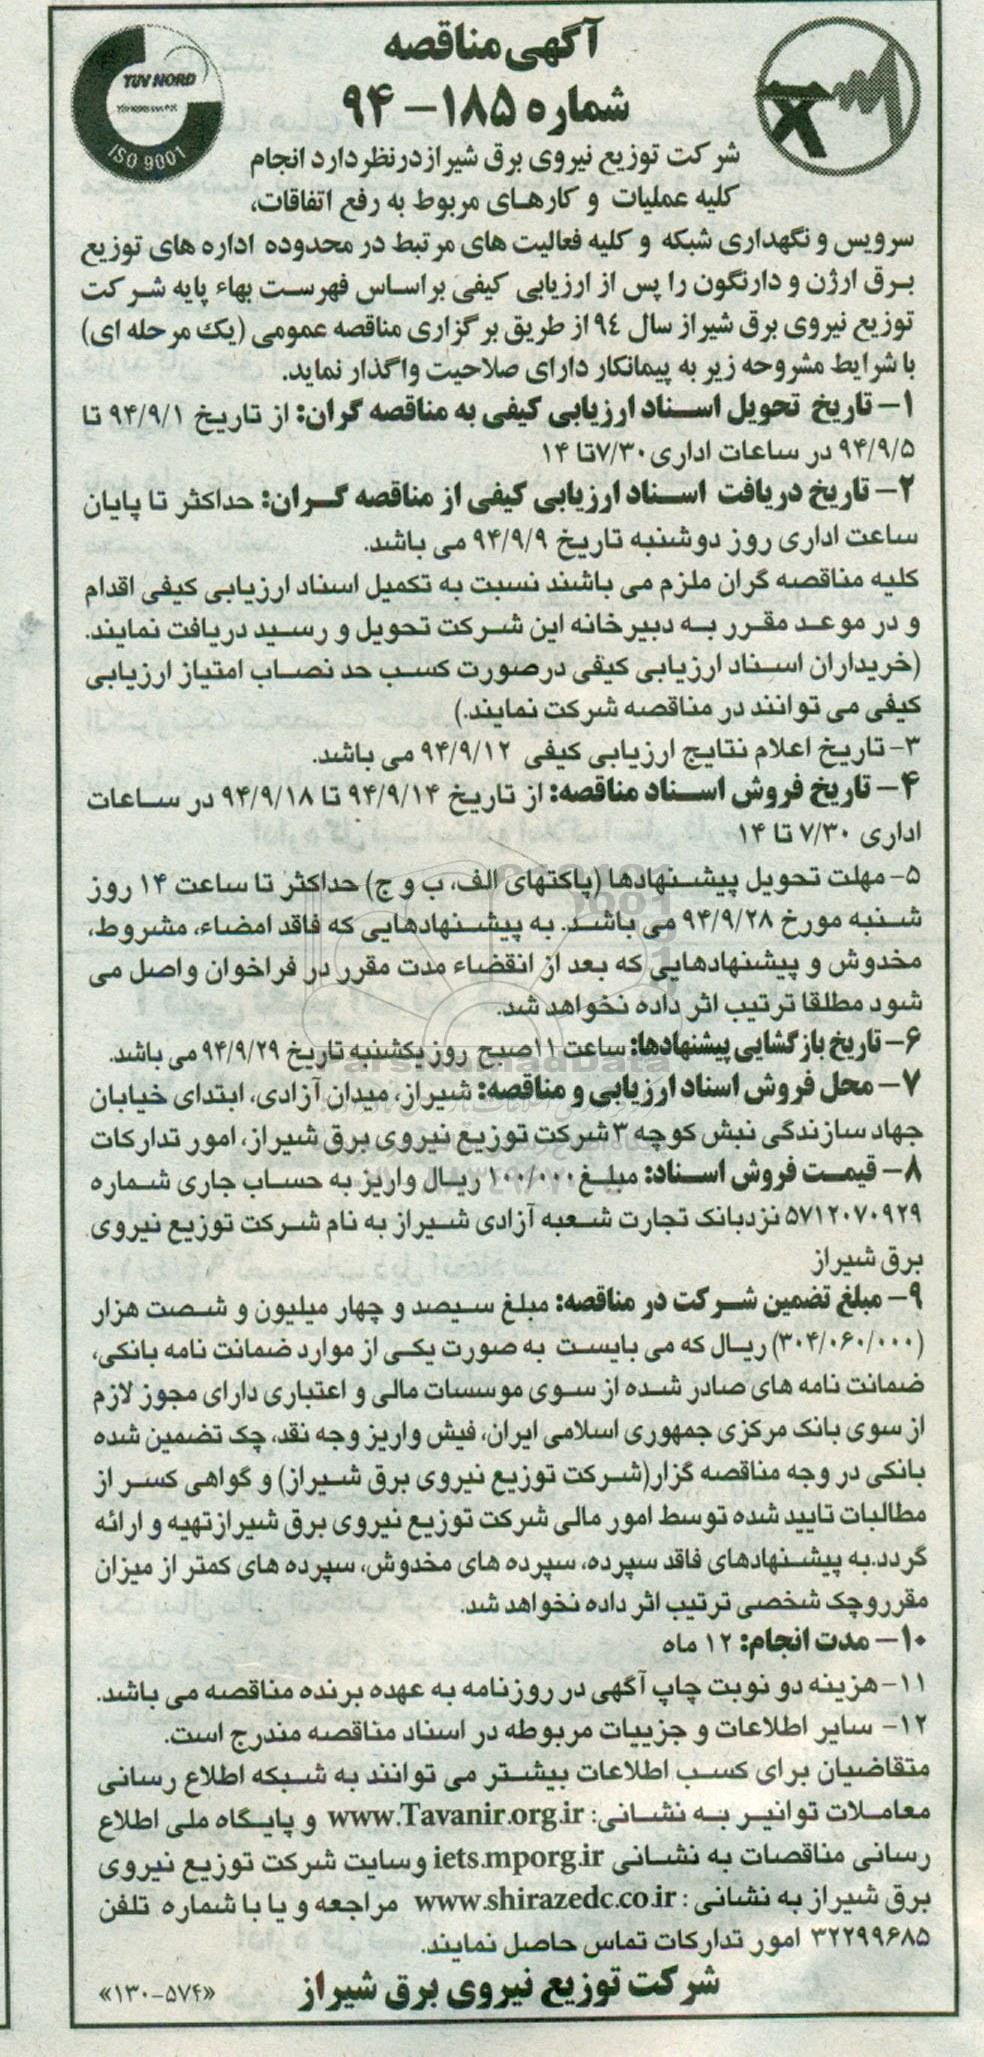 آگهی مناقصه
شماره ۱۸۵- ۹۴
TUV NORD
ISO 9001
شرکت توزیع نیروی برق شیراز درنظر دارد انجام
کلیه عملیات و کارهای مربوط به رفع اتفاقات،
سرویس و نگهداری شبکه و کلیه فعالیت های مرتبط در محدوده اداره های توزیع
برق ارژن و دارنگون را پس از ارزیابی کیفی براساس فهرست بهاء پایه شرکت
توزیع نیروی برق شیراز سال ۹۴ از طریق برگزاری مناقصه عمومی (یک مرحله ای)
با شرایط مشروحه زیر به پیمانکار دارای صلاحیت واگذار نماید.
۱- تاریخ تحویل اسناد ارزیابی کیفی به مناقصه گران: از تاریخ ۹۴/۹/۱ تا
۹۴/۹/۵ در ساعات اداری ۷/۳۰تا ۱۴
۲- تاریخ دریافت اسناد ارزیابی کیفی از مناقصه گران: حداکثر تا پایان
ساعت اداری روز دوشنبه تاریخ ۹۴/۹/۹ می باشد.
کلیه مناقصه گران ملزم می باشند نسبت به تکمیل اسناد ارزیابی کیفی اقدام
و در موعد مقرر به دبیرخانه این شرکت تحویل و رسید دریافت نمایند.
(خریداران اسناد ارزیابی کیفی درصورت کسب حد نصاب امتیاز ارزیابی
کیفی می توانند در مناقصه شرکت نمایند.)
۳- تاریخ اعلام نتایج ارزیابی کیفی ۹۴/۹/۱۲ می باشد.
۴- تاریخ فروش اسناد مناقصه: از تاریخ ۹۴/۹/۱۴ تا ۹۴/۹/۱۸ در ساعات
اداری ۷/۳۰ تا ۱۴
۵- مهلت تحویل پیشنهادها (پاکتهای الف، ب و ج) حداکثر تا ساعت ۱۴ روز
شنبه مورخ ۹۴/۹/۲۸ می باشد. به پیشنهادهایی که فاقد امضاء، مشروط،
مخدوش و پیشنهادهایی که بعد از انقضاء مدت مقرر در فراخوان واصل می
شود مطلقا ترتیب اثر داده نخواهد شد.
۶- تاریخ بازگشایی پیشنهادها: ساعت ۱۱صبح روز یکشنبه تاریخ ۹۴/۹/۲۹ می باشد.
ParsNamadData
۷- محل فروش اسناد ارزیابی و مناقصه: شیراز، میدان آزادی، ابتدای خیابان
جهاد سازندگی نبش کوچه ۳ شرکت توزیع نیروی برق شیراز، امور تدارکات
۸- قیمت فروش اسناد: مبلغ ۱۰۰/۰۰۰ ریال واریز به حساب جاری شماره
۵۷۱۲۰۷۰۹۲۹ نزد بانک تجارت شعبه آزادی شیراز به نام شرکت توزیع نیروی
برق شیراز
۹- مبلغ تضمین شرکت در مناقصه: مبلغ سیصد و چهار میلیون و شصت هزار
(۳۰۴/۰۶۰/۰۰۰) ریال که می بایست به صورت یکی از موارد ضمانت نامه بانکی،
ضمانت نامه های صادر شده از سوی موسسات مالی و اعتباری دارای مجوز لازم
از سوی بانک مرکزی جمهوری اسلامی ایران، فیش واریز وجه نقد، چک تضمین شده
بانکی در وجه مناقصه گزار(شرکت توزیع نیروی برق شیراز) و گواهی کسر از
مطالبات تایید شده توسط امور مالی شرکت توزیع نیروی برق شیراز تهیه و ارائه
گردد.به پیشنهادهای فاقد سپرده، سپرده های مخدوش، سپرده های کمتر از میزان
مقرروچک شخصی ترتیب اثر داده نخواهد شد.
۱۰- مدت انجام: ۱۲ ماه
۱۱-هزینه دو نوبت چاپ آگهی در روزنامه به عهده برنده مناقصه می باشد.
۱۲- سایر اطلاعات و جزییات مربوطه در اسناد مناقصه مندرج است.
متقاضیان برای کسب اطلاعات بیشتر می توانند به شبکه اطلاع رسانی
معاملات توانیر به نشانی: www.Tavanir.org.ir و پایگاه ملی اطلاع
رسانی مناقصات به نشانی iets.mporg.ir وسایت شرکت توزیع نیروی
برق شیراز به نشانی : www.shirazedc.co.ir مراجعه و یا با شماره تلفن
۳۲۲۹۹۶۸۵ امور تدارکات تماس حاصل نمایند.
شرکت توزیع نیروی برق شیراز
«۱۳۰-۵۷۴»